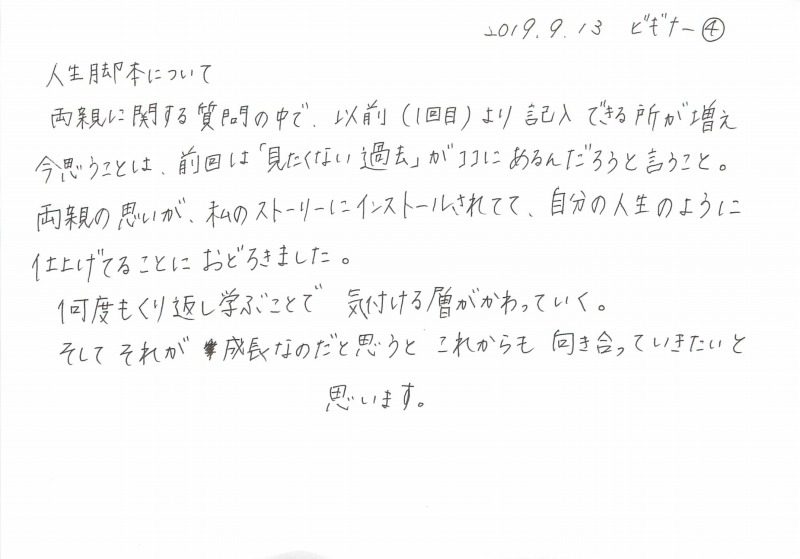 2019.9.13 ビギナー④
人生脚本について
両親に関する質問の中で、以前(1回目)より記入できる所が増え
今思うことは、前回は「見たくない過去」がココにあるんだろうと言うこと。
両親の思いが、私のストーリーにインストールされてて、自分の人生のように
仕上げてることにおどろきました。
何度もくり返し学ぶことで 気付ける層がかわっていく。
そしてそれが 成長なのだと思うと これからも 向き合っていきたいと
思います。